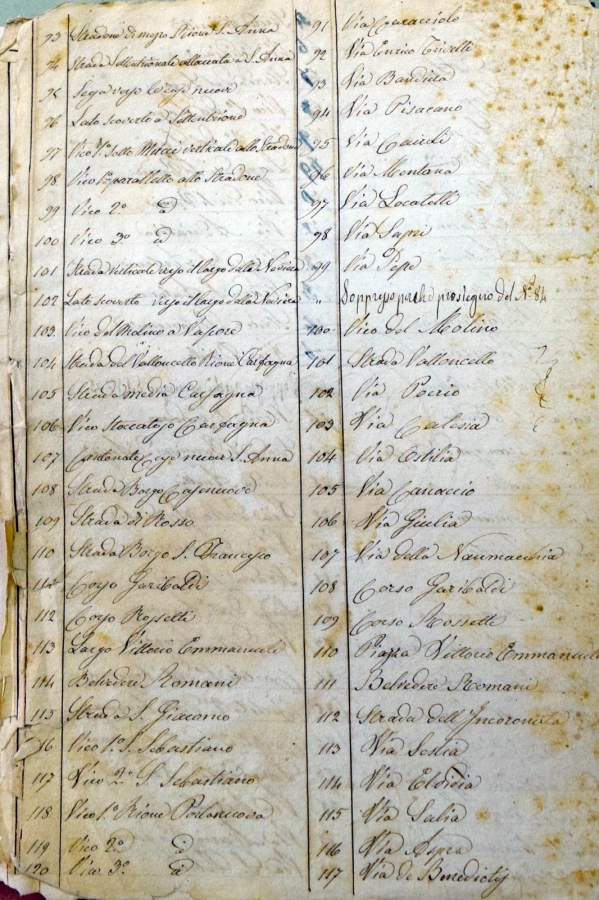 93 Stradone di mezzo Rione S. Anna 91 Via Caracciolo
94 Strada Settentrionale allacciata a S. Anna 92 Via Enrico Trivelli
95 Segue verso le case nuove 93 Via Bandiera
96 Lato scoverto a Settentrione 94 Via Pisacano
97 Vico 1º sotto Mucci verticale allo Stradone 95 Via Cairoli
98 Vico 1º parallello allo Stradone 96 Via Mentana
99 Vico 2º id 97 Via Locatelli
100 Vico 3º id 98 Via Sapri
101 Strada verticale verso il largo della Noviera 99 Via Pepe
102 Lato scoverto verso il largo della Noviera " Soppresso perchè prosieguo del Nº 84
103 Vico del Molino a Vapore 100 Vico del Molino
104 Strada del Valloncello Rione Carfagna 101 Strada Valloncello
105 Strada media Carfagna 102 Via
106 Vico Stoccatojo Carfagna 103 Via
107 Cantonale Case nuove S. Anna 104 Via
108 Strada Borgo Casenuove 105 Via Canaccio
109 Strada di Rosso 106 Via Giulia
110 Strada Borgo S. Francesco 107 Via della Naumacchia
111 Corso Garibaldi 108 Corso Garibaldi
112 Corso Rossetti 109 Corso Rossetti
113 Largo Vittorio Emmanuele 110 Piazza Vittorio Emmanuele
114 Belvedere Romani 111 Belvedere Romani
115 Strada S. Giacomo 112 Strada dell'Incoronata
116 Vico 1º S. Sebastiano 113 Via Sestia
117 Vico 2º S. Sebastiano 114 Via Eloisia
118 Vico 1º Rione Portanuova 115 Via Salia
119 Vico 2º id 116 Via
120 Vico 3º id 117 Via de Benedictis